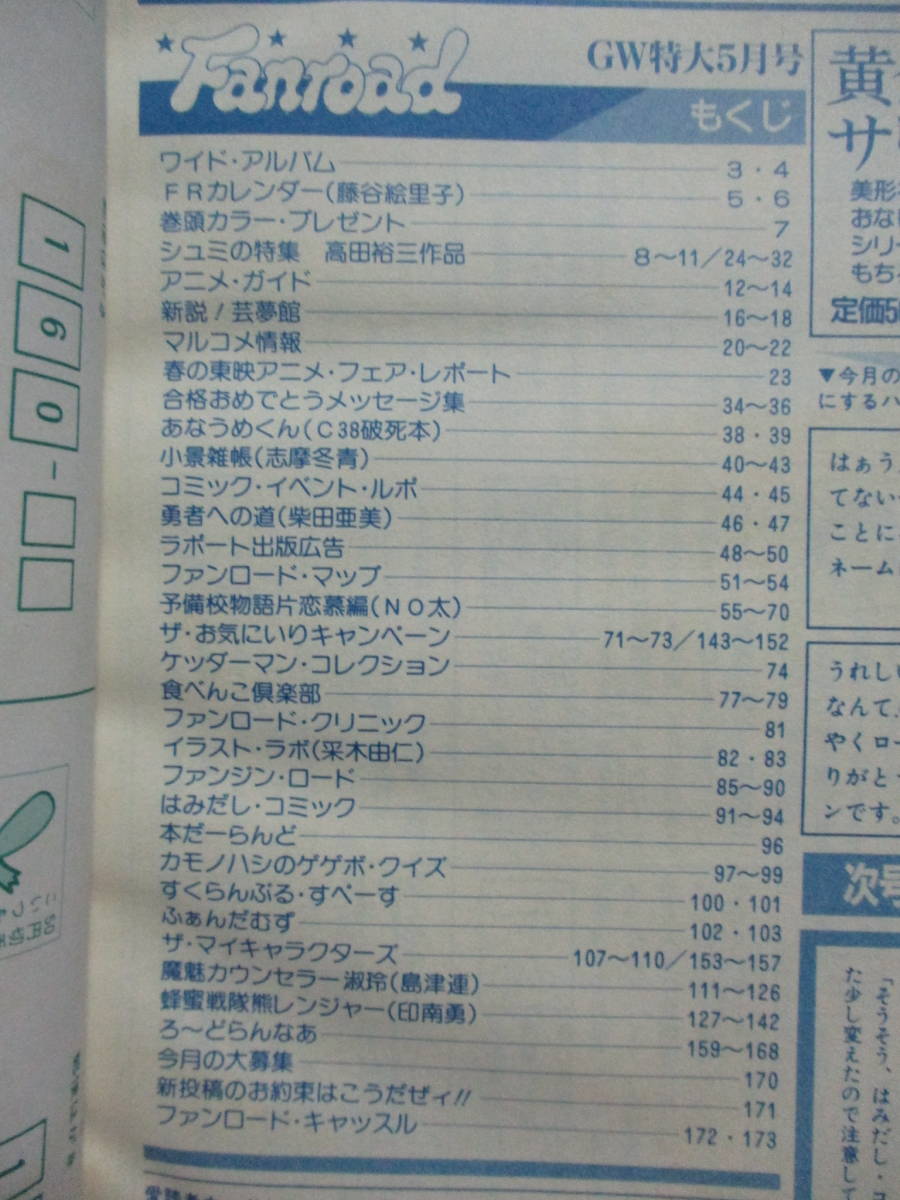 Fanroad
GW特大5月号
もくじ
ワイド・アルバム 3・4
FRカレンダー(藤谷絵里子) 5・6
巻頭カラー・プレゼント 7
シュミの特集 高田裕三作品 8〜11/24〜32
アニメ・ガイド 12〜14
新説!芸夢館 16〜18
マルコメ情報 20〜22
春の東映アニメ・フェア・レポート 23
合格おめでとうメッセージ集 34〜36
あなうめくん(C38破死本) 38・39
小景雑帳(志摩冬青) 40〜43
コミック・イベント・ルポ 44・45
勇者への道(柴田亜美) 46・47
ラポート出版広告 48〜50
ファンロード・マップ 51〜54
予備校物語片恋慕編(NO太) 55〜70
ザ・お気にいりキャンペーン 71〜73/143〜152
ケッダーマン・コレクション 74
食べんこ倶楽部 77〜79
ファンロード・クリニック 81
イラスト・ラボ(采木由仁) 82・83
ファンジン・ロード 85〜90
はみだし・コミック 91〜94
本だーらんど 96
カモノハシのゲゲボ・クイズ 97〜99
すくらんぶる・すぺーす 100・101
ふぁんだむず 102・103
ザ・マイキャラクターズ 107〜110/153〜157
魔魅カウンセラー淑玲(島津連) 111〜126
蜂蜜戦隊熊レンジャー(印南勇) 127〜142
ろ〜どらんなあ 159〜168
今月の大募集 170
新投稿のお約束はこうだぜィ!! 171
ファンロード・キャッスル 172・173
160-
黄
サ
美形
おな
シリー
もち
定価5
▼今月の
にするハ
はぁう
てない
ことに
ネーム
うれし
なんて
やくロー
りがと
ンです。
次号
「そうそう、はみだし・コ
た少し変えたので注意して